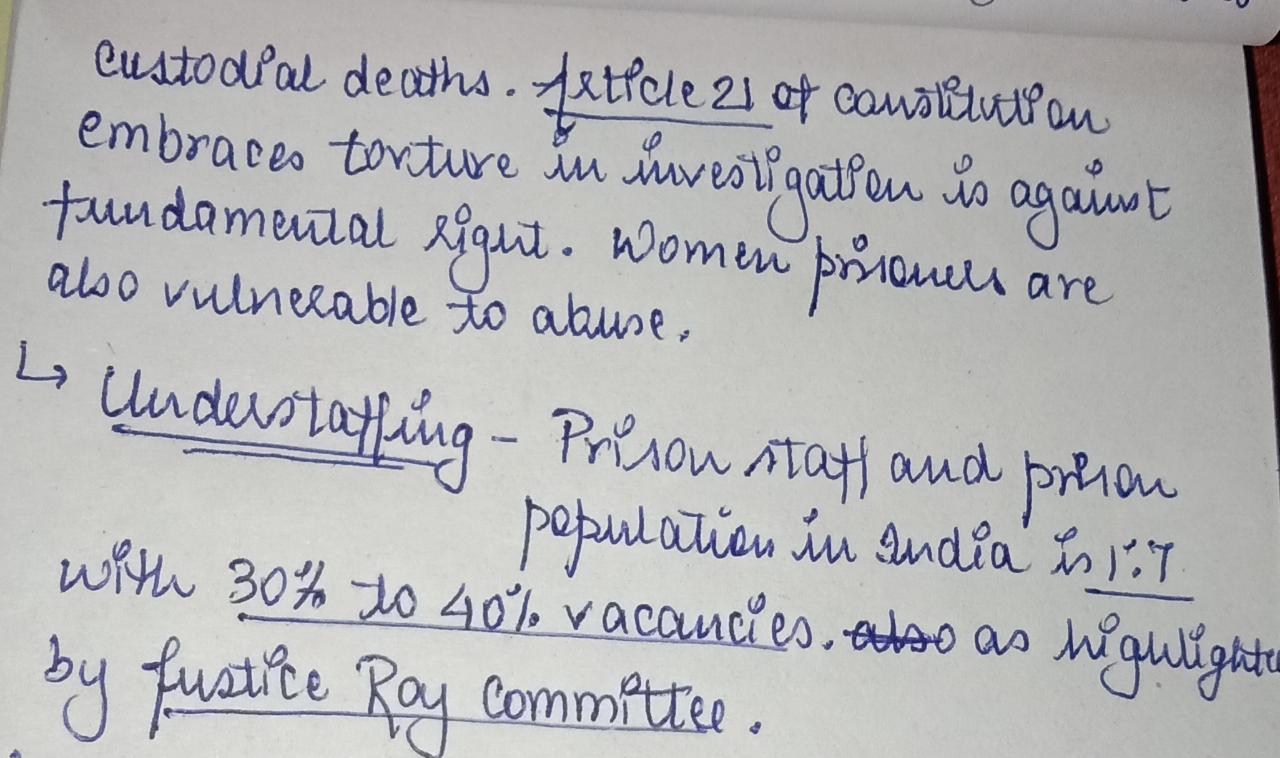 custodial deaths. Article 21 of constitution
embraces torture in investigation is against
fundamental right. Women prisoners are
also vulnerable to abuse.
↳ Understaffing - Prison staff and prison
population in India is 1:7
with 30% to 40% vacancies. also as highlighte
by Justice Roy Committee.